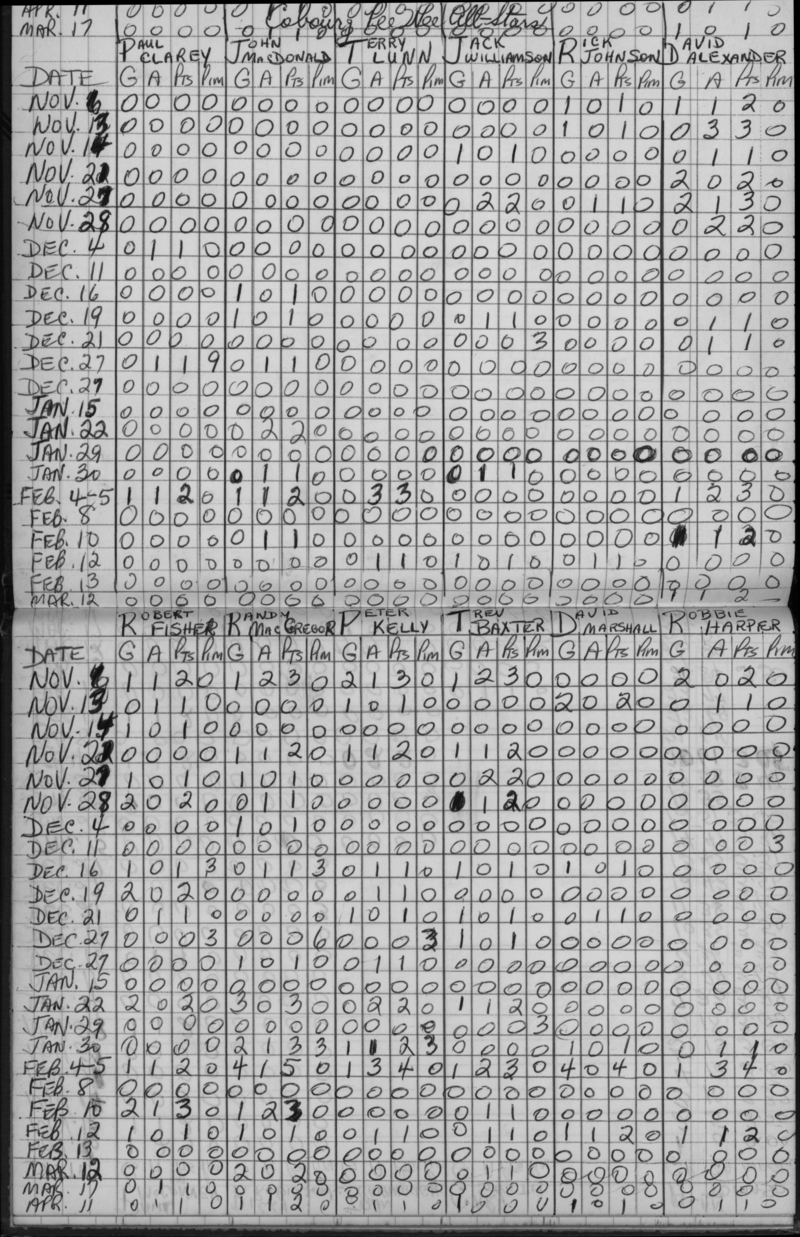 APR. 11 0 0 0 0 0 0 0 0 0 1 1 0
MAR. 17 0 0 0 0 Cobourg Pee Wee All-Stars 0 0 0 0 1 0 1 0
PAUL CLAREY JOHN MACDONALD TERRY LUNN JACK WILLIAMSON RICK JOHNSON DAVID ALEXANDER
DATE G A Pts Pim G A Pts Pim G A Pts Pim G A Pts Pim G A Pts Pim G A Pts Pim
NOV. 6 0 0 0 0 0 0 0 0 0 0 0 0 0 0 0 0 1 0 1 0 1 1 2 0
NOV. 13 0 0 0 0 0 0 0 0 0 0 0 0 0 0 0 0 1 0 1 0 0 3 3 0
NOV. 14 0 0 0 0 0 0 0 0 0 0 0 0 1 0 1 0 0 0 0 0 0 1 1 0
NOV. 21 0 0 0 0 0 0 0 0 0 0 0 0 0 0 0 0 0 0 0 0 2 0 2 0
NOV. 27 0 0 0 0 0 0 0 0 0 0 0 0 0 2 2 0 0 1 1 0 2 1 3 0
NOV. 28 0 0 0 0 0 0 0 0 0 0 0 0 0 0 0 0 0 0 0 0 0 2 2 0
DEC. 4 0 1 1 0 0 0 0 0 0 0 0 0 0 0 0 0 0 0 0 0 0 0 0 0
DEC. 11 0 0 0 0 0 0 0 0 0 0 0 0 0 0 0 0 0 0 0 0 0 0 0 0
DEC. 16 0 0 0 0 1 0 1 0 0 0 0 0 0 0 0 0 0 0 0 0 0 0 0 0
DEC. 19 0 0 0 0 1 0 1 0 0 0 0 0 0 1 1 0 0 0 0 0 0 1 1 0
DEC. 21 0 0 0 0 0 0 0 0 0 0 0 0 0 0 0 3 0 0 0 0 0 1 1 0
DEC. 27 0 1 1 9 0 1 1 0 0 0 0 0 0 0 0 0 0 0 0 0 0 0 0 0
DEC. 29 0 0 0 0 0 0 0 0 0 0 0 0 0 0 0 0 0 0 0 0 0 0 0 0
JAN. 15 0 0 0 0 0 0 0 0 0 0 0 0 0 0 0 0 0 0 0 0 0 0 0 0
JAN. 22 0 0 0 0 0 2 2 0 0 0 0 0 0 0 0 0 0 0 0 0 0 0 0 0
JAN. 29 0 0 0 0 0 0 0 0 0 0 0 0 0 0 0 0 0 0 0 0 0 0 0 0
JAN. 30 0 0 0 0 0 1 1 0 0 0 0 0 0 1 1 0 0 0 0 0 0 0 0 0
FEB. 4-5 1 1 2 0 1 1 2 0 0 3 3 0 0 0 0 0 0 0 0 0 1 2 3 0
FEB. 8 0 0 0 0 0 0 0 0 0 0 0 0 0 0 0 0 0 0 0 0 0 0 0 0
FEB. 10 0 0 0 0 0 1 1 0 0 0 0 0 0 0 0 0 0 0 0 0 1 1 2 0
FEB. 12 0 0 0 0 0 0 0 0 0 1 1 0 1 0 1 0 0 1 1 0 0 0 0 0
FEB. 13 0 0 0 0 0 0 0 0 0 0 0 0 0 0 0 0 0 0 0 0 0 0 0 0
MAR. 12 0 0 0 0 0 0 0 0 0 0 0 0 0 0 0 0 0 0 0 0 1 1 2
ROBERT FISHER RANDY MACGREGOR PETER KELLY TREV BAXTER DAVID MARSHALL ROBBIE HARPER
DATE G A Pts Pim G A Pts Pim G A Pts Pim G A Pts Pim G A Pts Pim G A Pts Pim
NOV. 6 1 1 2 0 1 2 3 0 2 1 3 0 1 2 3 0 0 0 0 0 2 0 2 0
NOV. 13 0 1 1 0 0 0 0 0 1 0 1 0 0 0 0 0 2 0 2 0 0 1 1 0
NOV. 14 1 0 1 0 0 0 0 0 0 0 0 0 0 0 0 0 0 0 0 0 0 0 0 0
NOV. 21 0 0 0 0 1 1 2 0 1 1 2 0 1 1 2 0 0 0 0 0 0 0 0 0
NOV. 27 1 0 1 0 1 0 1 0 0 0 0 0 0 2 2 0 0 0 0 0 0 0 0 0
NOV. 28 2 0 2 0 0 1 1 0 0 0 0 0 1 1 2 0 0 0 0 0 0 0 0 0
DEC. 4 0 0 0 0 1 0 1 0 0 0 0 0 0 0 0 0 0 0 0 0 0 0 0 0
DEC. 11 0 0 0 0 0 0 0 0 0 0 0 0 0 0 0 0 0 0 0 0 0 0 0 3
DEC. 16 1 0 1 3 0 1 1 3 0 1 1 0 1 0 1 0 1 0 1 0 0 0 0 0
DEC. 19 2 0 2 0 0 0 0 0 0 1 1 0 0 0 0 0 0 0 0 0 0 0 0 0
DEC. 21 0 1 1 0 0 0 0 0 1 0 1 0 1 0 1 0 0 1 1 0 0 0 0 0
DEC. 27 0 0 0 3 0 0 0 6 0 0 0 3 1 0 1 0 0 0 0 0 0 0 0 0
DEC. 29 0 0 0 0 1 0 1 0 0 1 1 0 0 0 0 0 0 0 0 0 0 0 0 0
JAN. 15 0 0 0 0 0 0 0 0 0 0 0 0 0 0 0 0 0 0 0 0 0 0 0 0
JAN. 22 2 0 2 0 3 0 3 0 0 2 2 0 1 1 2 0 0 0 0 0 0 0 0 0
JAN. 29 0 0 0 0 0 0 0 0 0 0 0 0 0 0 0 3 0 0 0 0 0 0 0 0
JAN. 30 0 0 0 0 2 1 3 3 1 1 2 3 0 0 0 0 1 0 1 0 0 1 1 0
FEB. 4-5 1 1 2 0 4 1 5 0 1 3 4 0 1 2 3 0 4 0 4 0 1 3 4 0
FEB. 8 0 0 0 0 0 0 0 0 0 0 0 0 0 0 0 0 0 0 0 0 0 0 0 0
FEB 10 2 1 3 0 1 2 3 0 0 0 0 0 0 1 1 0 0 0 0 0 0 0 0 0
FEB. 12 1 0 1 0 1 0 1 0 0 1 1 0 0 1 1 0 1 1 2 0 1 1 2 0
FEB. 13 0 0 0 0 0 0 0 0 0 0 0 0 0 0 0 0 0 0 0 0 0 0 0 0
MAR. 12 0 0 0 0 2 0 2 0 0 0 0 0 0 1 1 0 0 0 0 0 0 0 0 0
MAR. 17 0 1 1 0 0 0 0 0 0 0 0 0 0 0 0 0 0 0 0 0
APR. 11 0 1 1 0 1 1 2 0 0 1 1 0 1 0 1 0 0 1 1 0